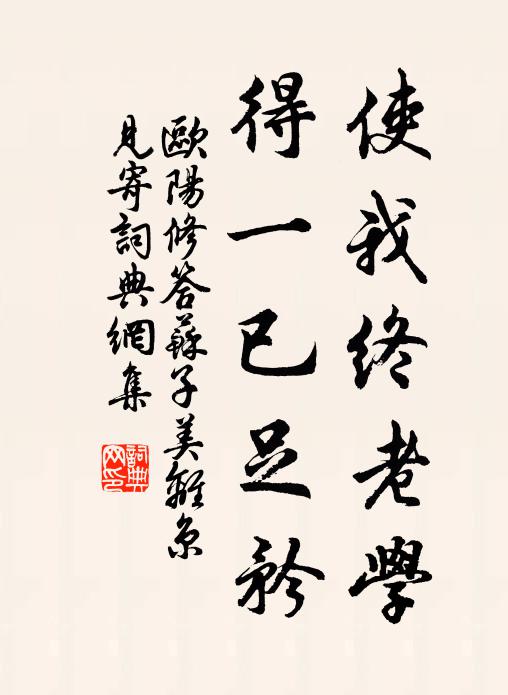 使我終老學
得一已足矜
歐陽修答蘇子美離京
見寄詞典網集
詞典
网印